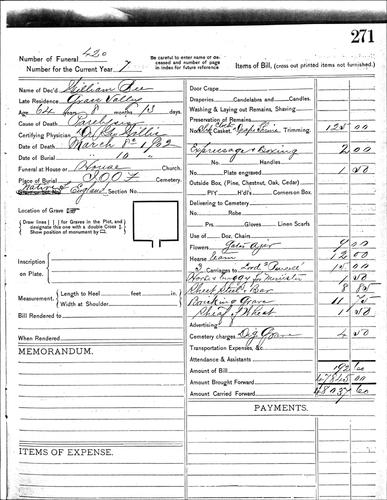 271
Number of Funeral 420
Number for the Current Year 7
Be careful to enter name of deceased and number of page in index for future reference
Items of Bill, (cross out printed items not furnished.)
Name of Dec'd William
Late Residence Grass Valley
Age 64 years 8 months 13 days
Cause of Death
Certifying Physician
Date of Death March 8th 1902
Date of Burial " 10 "
Funeral at House or Church.
Place of Burial I.O.O.F Cemetery.
Native of England Section No.
Location of Grave
Draw lines for Graves in the Plot, and designate this one with a double Cross Show position of monument by
Inscription on Plate.
Measurement. Length to Heel feet inches.
Width at Shoulder " "
Bill Rendered to
When Rendered
MEMORANDUM.
ITEMS OF EXPENSE.
Door Crape
Draperies Candelabra and Candles.
Washing & Laying out Remains, Shaving
Preservation of Remains
Casket Trimming. 125 00
Expressage & Boxing 2 00
No. Handles
No. Plate engraved 1 50
Outside Box, (Pine, Chestnut, Oak, Cedar)
P/Y H'd Corners on Box
Delivering to Cemetery
No. Robe
Prs. Gloves Linen Scarfs
Use of Doz. Chairs
Flowers Gates Ajar 9 00
Hearse team 12 00
3 Carriages to 15 00
Horse & buggy for Minister 1 50
Sheet Steel Bar 8 85
Bricking Grave 11 75
Sheaf of Wheat 1 50
Advertising
Cemetery charges Dig Grave 4 50
Transportation Expenses, &c.
Attendance & Assistants
Amount of Bill 192 60
Amount Brought Forward 47845 00
Amount Carried Forward 48037 60
PAYMENTS.